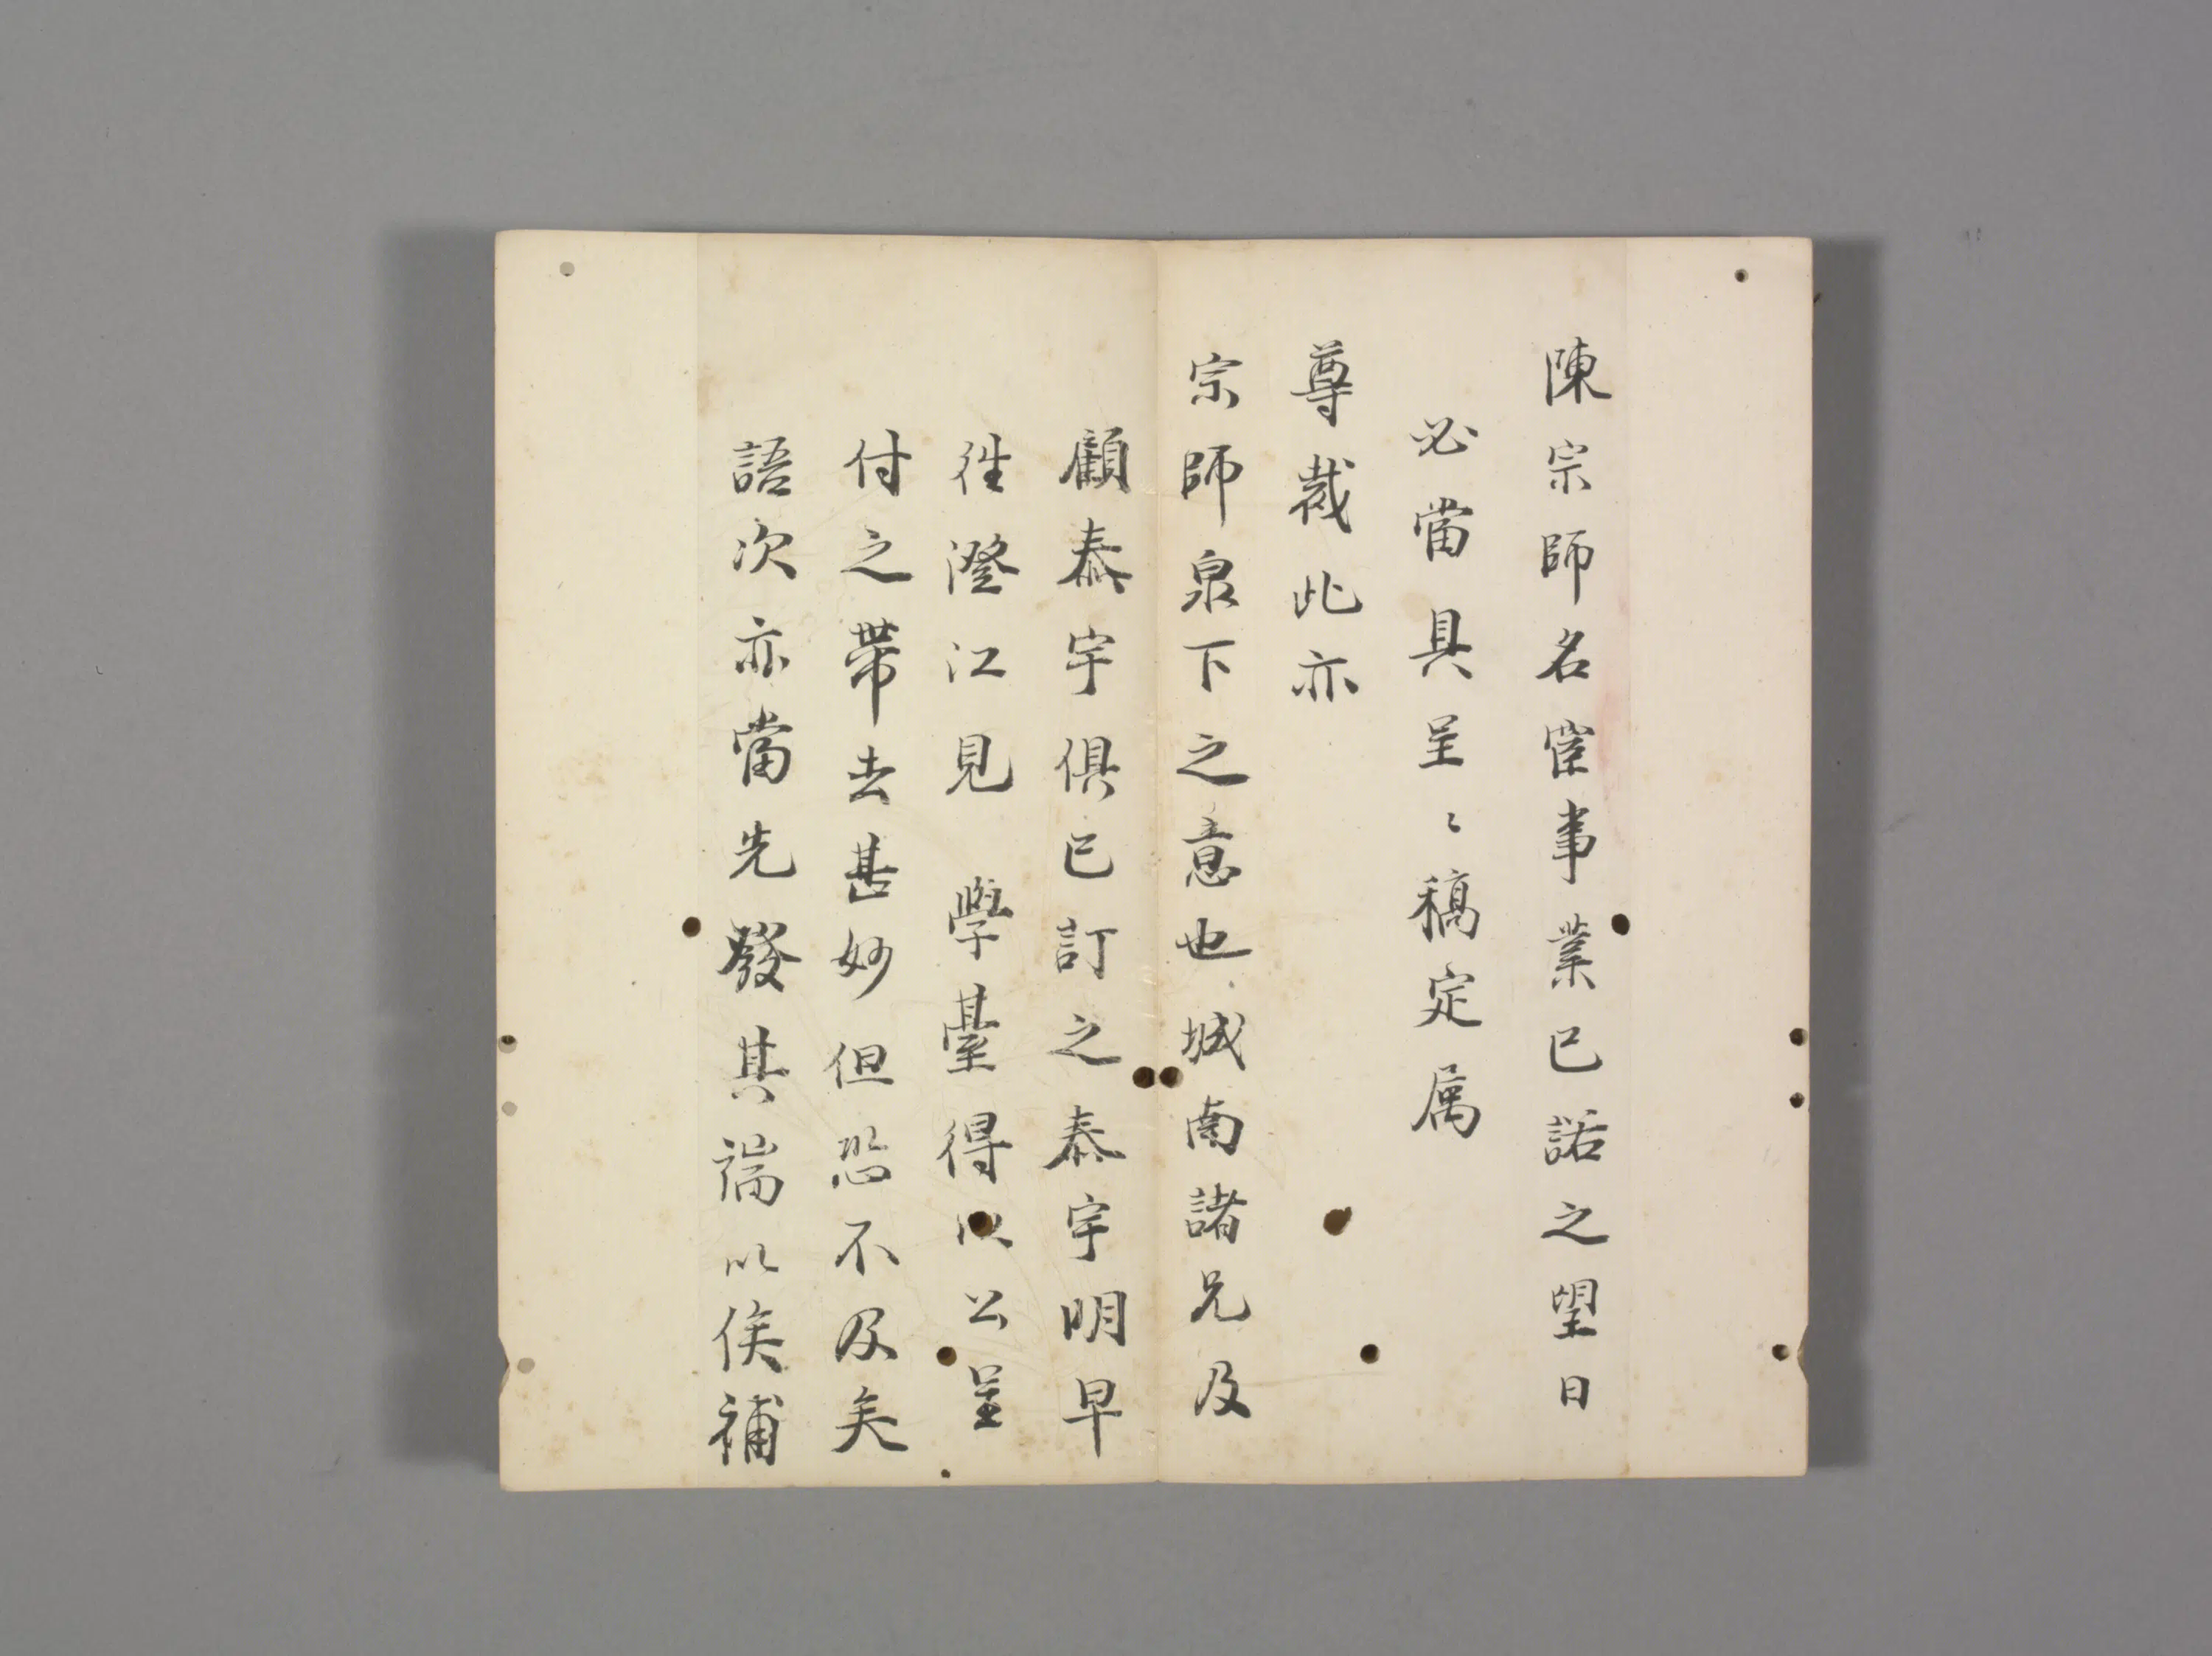 陳宗師名宦事業已諾之望日
必當具呈〻稿定属
尊裁此亦
宗師泉下之意也城南諸兄及
顧泰宇俱已訂之泰宇明早
往澄江見 學臺得以公呈
付之帶去甚妙但恐不及矣
語次亦當先發其端以俟補